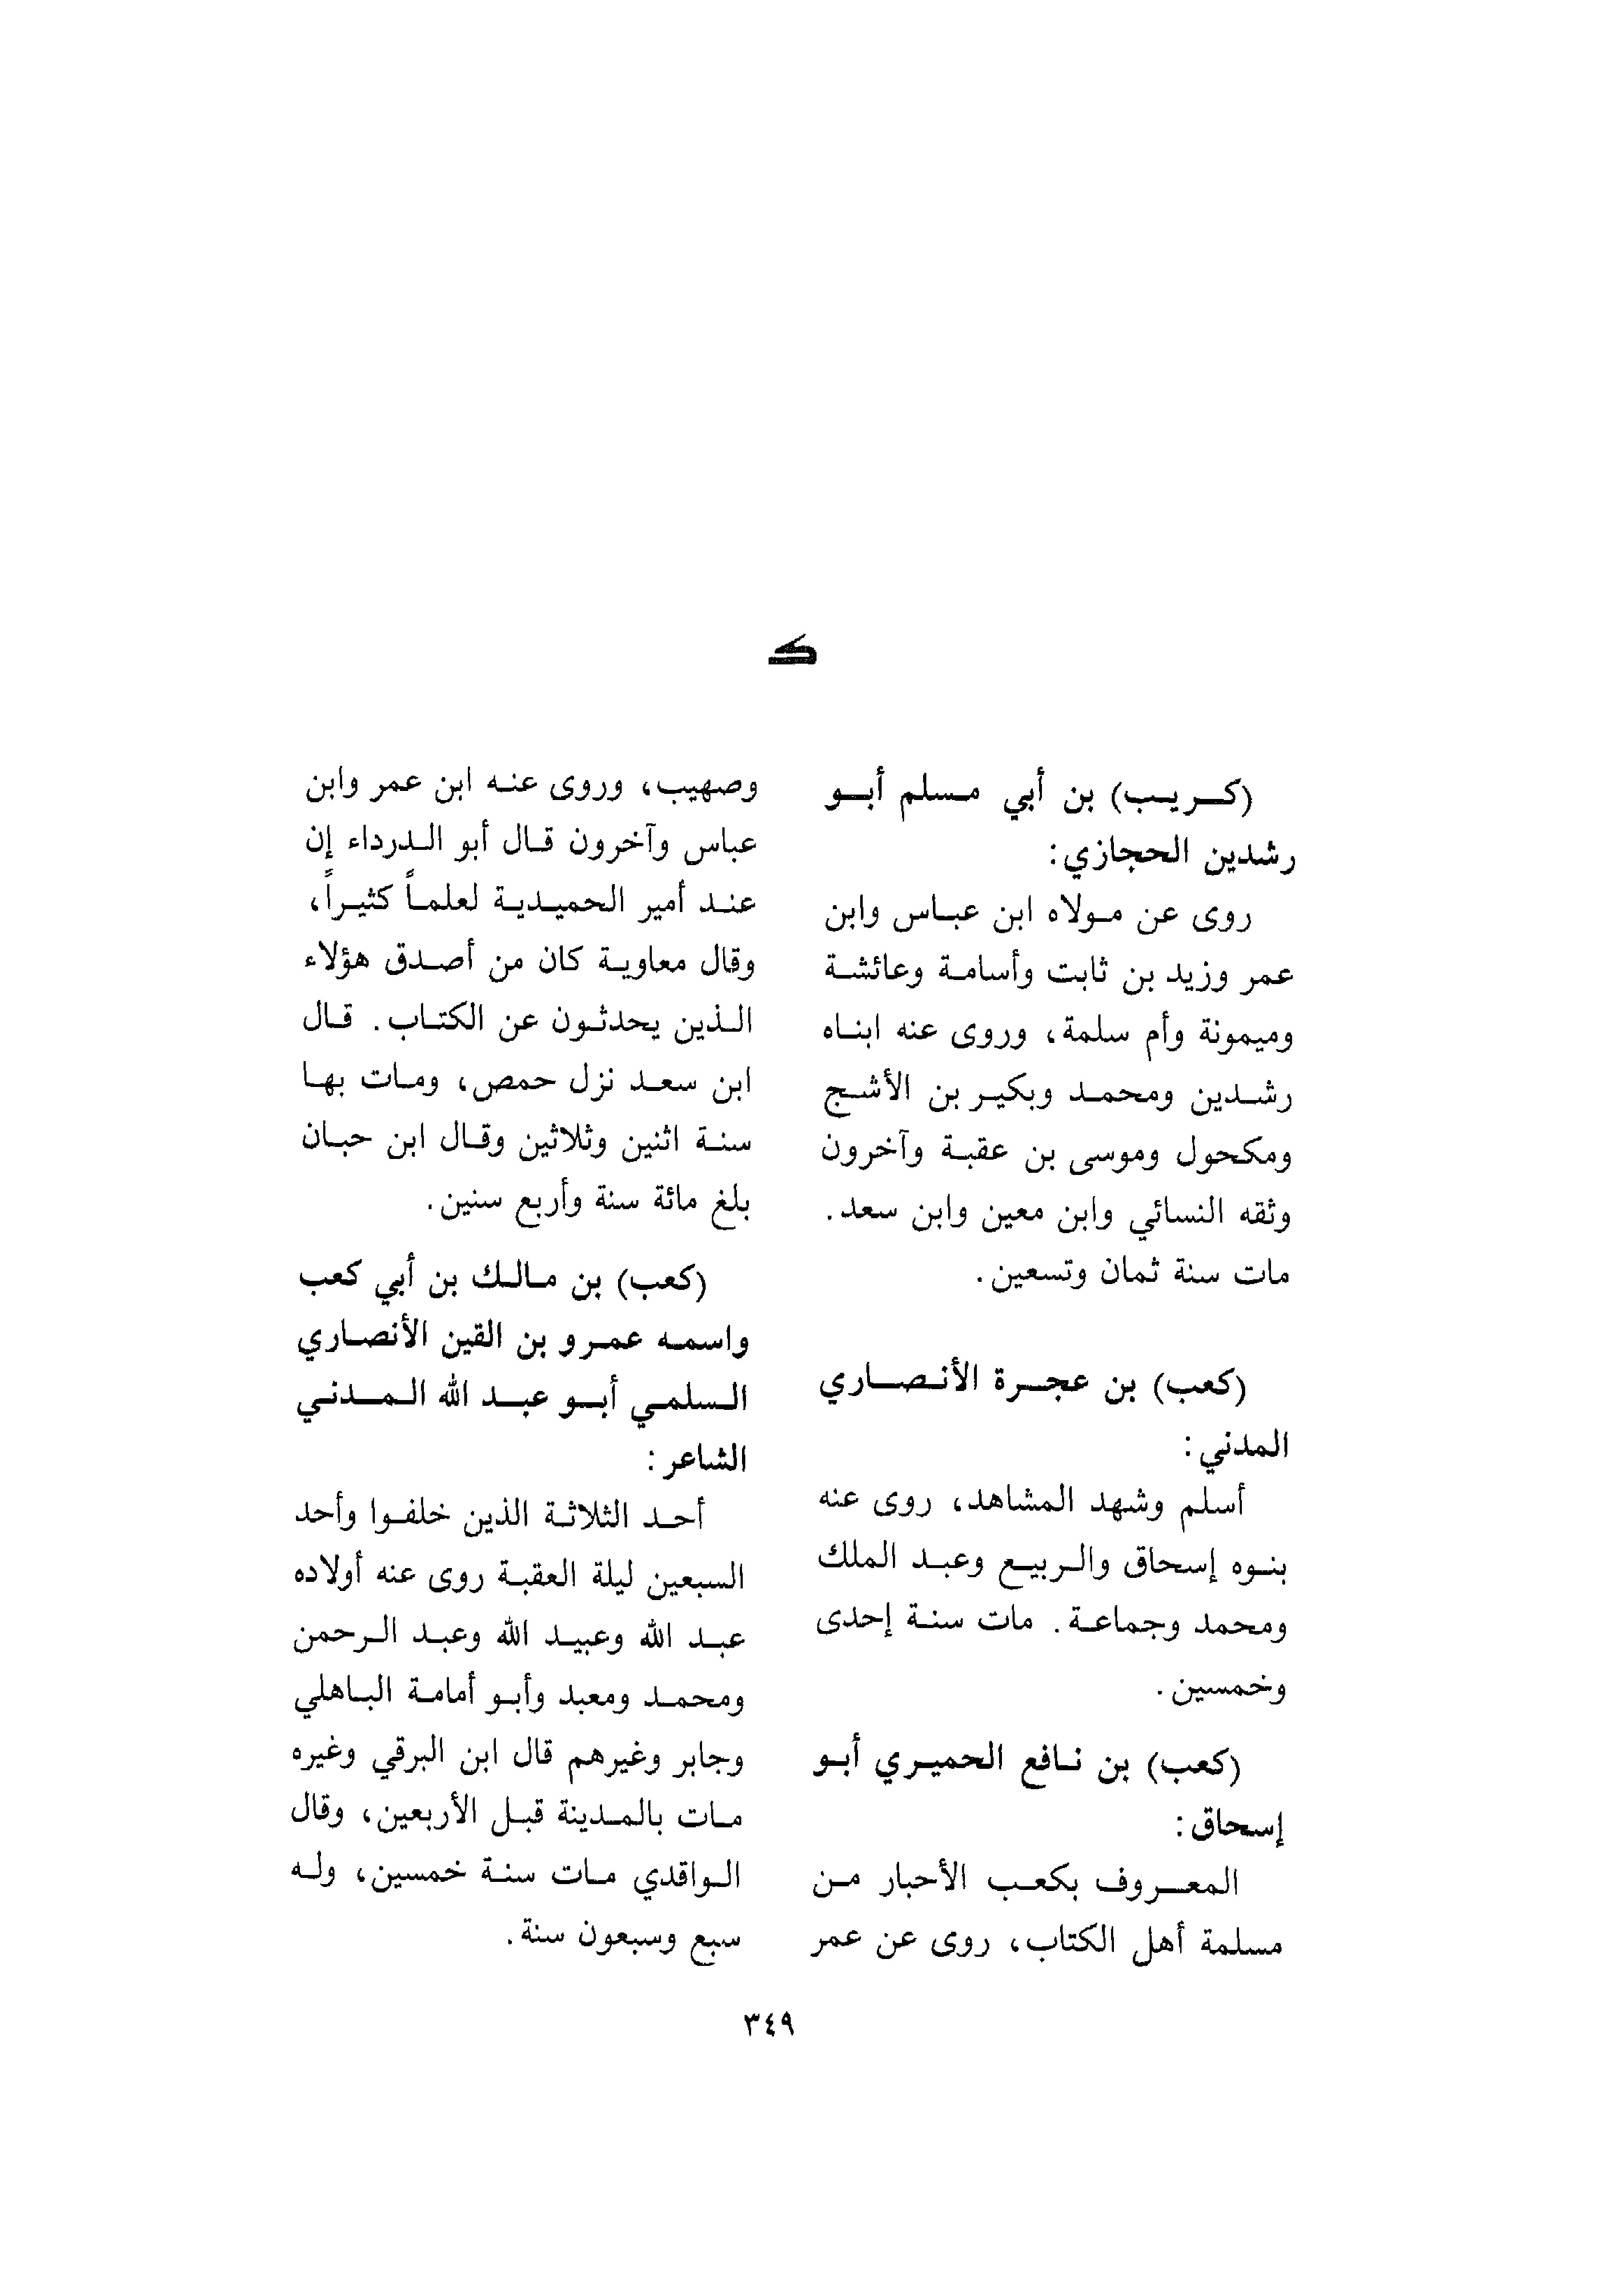 ك
(كريب) بن أبي مسلم أبو
رشدين الحجازي:
روى عن مولاه ابن عباس وابن
عمر وزيد بن ثابت وأسامة وعائشة
وميمونة وأم سلمة، وروى عنه ابناه
رشدين ومحمد وبكير بن الأشج
ومكحول وموسى بن عقبة وآخرون
وثقه النسائي وابن معين وابن سعد.
مات سنة ثمان وتسعين.
(كعب) بن عجرة الأنصاري
المدني:
أسلم وشهد المشاهد، روى عنه
بنوه إسحاق والربيع وعبد الملك
ومحمد وجماعة. مات سنة إحدى
وخمسين.
(كعب) بن نافع الحميري أبو
إسحاق:
المعروف بكعب الأحبار من
مسلمة أهل الكتاب، روى عن عمر
وصهيب، وروى عنه ابن عمر وابن
عباس وآخرون قال أبو الدرداء إن
عند أمير الحميدية لعلماً كثيراً،
وقال معاوية كان من أصدق هؤلاء
الذين يحدثون عن الكتاب. قال
ابن سعد نزل حمص، ومات بها
سنة اثنين وثلاثين وقال ابن حبان
بلغ مائة سنة وأربع سنين.
(كعب) بن مالك بن أبي كعب
واسمه عمرو بن القين الأنصاري
السلمي أبو عبد الله المدني
الشاعر:
أحد الثلاثة الذين خلفوا وأحد
السبعين ليلة العقبة روى عنه أولاده
عبد الله وعبيد الله وعبد الرحمن
ومحمد ومعبد وأبو أمامة الباهلي
وجابر وغيرهم قال ابن البرقي وغيره
مات بالمدينة قبل الأربعين، وقال
الواقدي مات سنة خمسين، وله
سبع وسبعون سنة.
٣٤٩